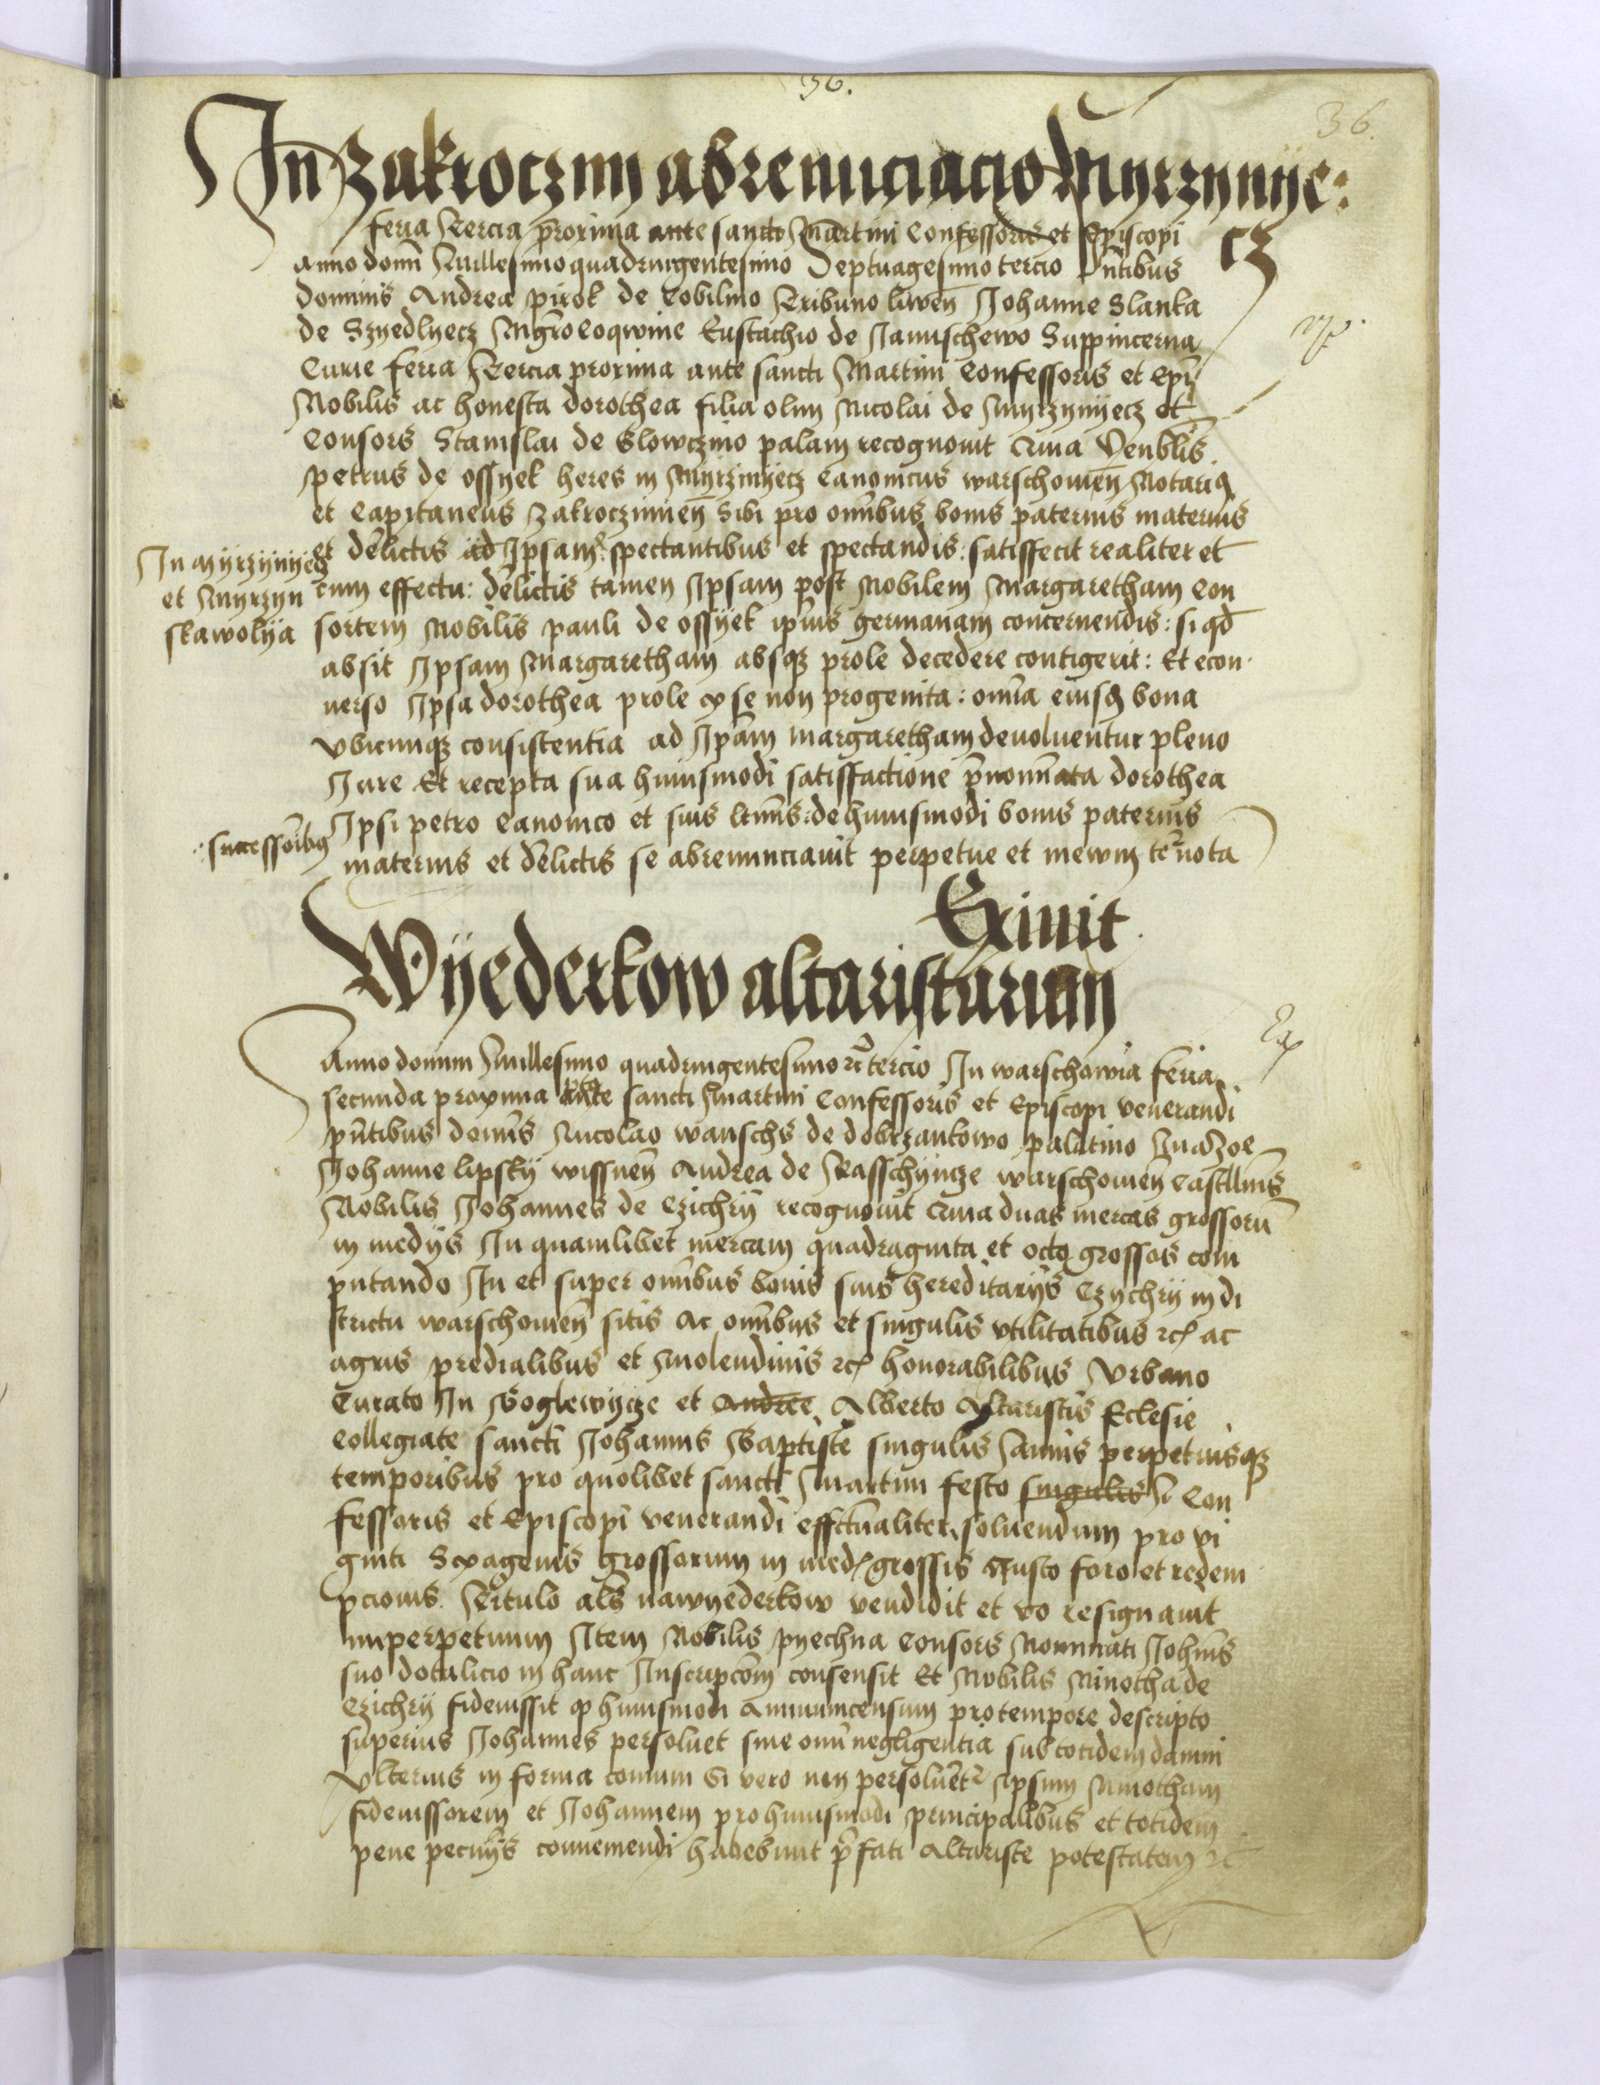 36.
36.
In Zakroczim abrenunciacio Myrzynye:
cz
feria Tercia proxima ante sancti Martini Confessoris et Episcopi
Anno domī Millesimo quadringentesimo Septuagesimo tercio pntibus
dominis Andrea pirok de Cobilino Tribuno liwen Johanne Slanka
de Szyedlyecz Mgro Coqwine Eustachio de Januschewo Suppincerna
Curie feria Tercia proxima ante sancti Martini Confessoris et Epi
Nobilis ac honesta dorothea filia olim Nicolai de Myrzynyecz et
Consors Stanislai de Slowczino palam recognouit Quia Venblis
petrus de ossyek heres in Myrzinyecz Canonicus warschouien Notariq
et Capitaneus Zakroczimien Sibi pro omibus bonis paternis maternis
et delictis ad Ipsam spectantibus et spectandis: satisfecit realiter et
In Myrzynyecz
et Myrzyn
skawolya
cum effectu: delictis tamen Ipsam post Nobilem Margaretham Con
sortem Nobilis pauli de ossyek ipius germanam concernendis: si qd
absit Ipsam Margaretham absqz prole decedere contigerit: Et econ
uerso Ipsa dorothea prole ex se non progenita: omia eiusq bona
vbicunqz consistentia ad Ipam Margaretham deuoluentur pleno
Jure Et recepta sua huiusmodi satisfactione pnomiata dorothea
Ipsi petro Canonico et suis ltimis de huiusmodi bonis paternis
successoribq
maternis et delictis se abrenunciauit perpetue et in ewm
Exiuit
Wyederkow altaristarum
Exp
Anno domini Millesimo quadringentesimo rc tercio In warschowia feria
secunda proxima ante sancti Martini Confessoris et Episcopi venerandi
pntibus domis Nicolao wanschs de dobrzankowo palatino Mazoe
Johanne lipsky wissnen Andrea de Rasschyncze warschouien Castllnis
Nobilis Johannes de Czichry recognouit Quia duas mercas grossoru
in medys In quamlibet mercam quadraginta et octo grossos com
putando In et super omibus bonis suis hereditarys Czychry in di
strictu warschouien sitis Ac omibus et singulis vtilitatibus rc ac
agris predialibus et Molendinis rc honorabilibus Vrbano
Curato In Goglewycze et Andree Alberto Altaristis Eclesie
Collegiate sancti Johannis Baptiste singulis Annis perpetuisqz
temporibus pro quolibet sancti Martini festo singulis Con
fessoris et Episcopi venerandi effctualiter soluendum pro vi
ginti Sexagenis grossorum in med grossis Justo foro et redem
pcionis Titulo als nawyederkow vendidit et resignauit
imperpetuum Item Nobilis pyechna Consors Nominati Johis
suo dotalicio in hanc Inscripcom consensit Et Nobilis Ninotha de
Czichry fideiussit q huiusmodi Annuumcensum pro tempore descripto
superius Johannes persoluet sine omi negligentia sub totidem damni
Vlterius in forma comuni Si vero non persoluetr Ipsum Ninotham
fideiussorem et Johannem pro huiusmodi principalibus et totidem
pene pecuniis conueniendi habebunt pfati Altariste potestatem rc